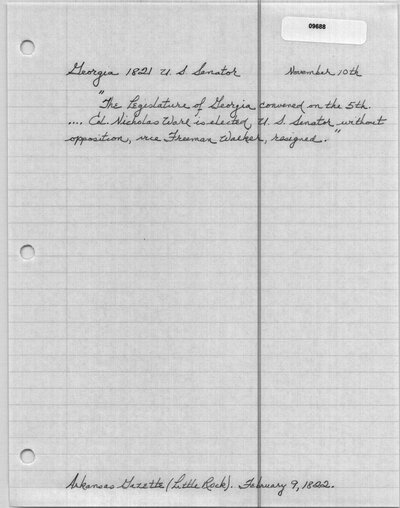 09688
Georgia 1821 U. S. Senator November 10th
"The Legislature of Georgia convened on the 5th.
.... Col. Nicholas Ware is elected U. S. Senator without
opposition, vice Freeman Walker, resigned."
Arkansas Gazette (Little Rock). February 9, 1822.